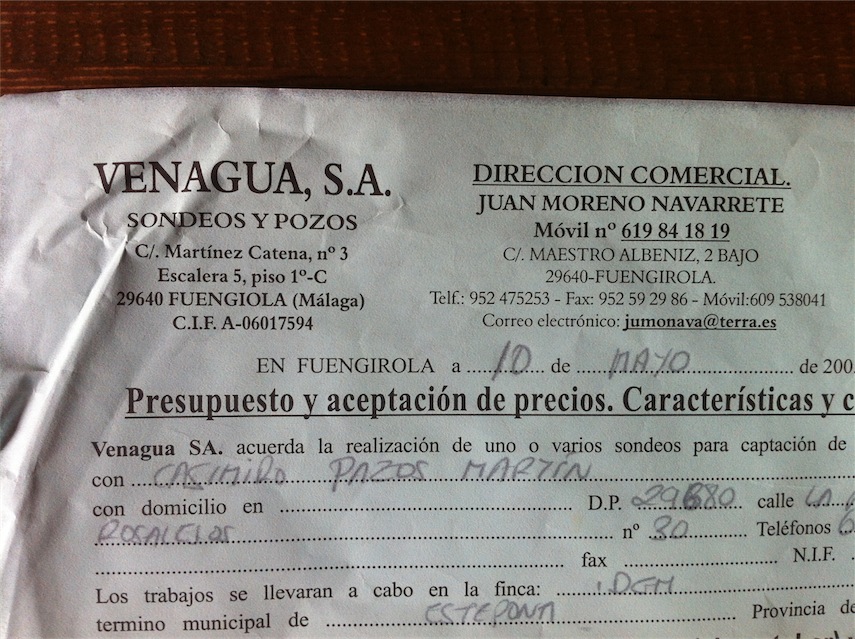 VENAGUA, S.A.
SONDEOS Y POZOS
C/. Martínez Catena, nº 3
Escalera 5, piso 1º-C
29640 FUENGIOLA (Málaga)
C.I.F. A-06017594
DIRECCION COMERCIAL.
JUAN MORENO NAVARRETE
Móvil nº 619 84 18 19
C/. MAESTRO ALBENIZ, 2 BAJO
29640-FUENGIROLA.
Telf.: 952 475253 - Fax: 952 59 29 86 - Móvil:609 538041
Correo electrónico: jumonava@terra.es
EN FUENGIROLA a 10 de MAYO de 200
Presupuesto y aceptación de precios. Características y c
Venagua SA. acuerda la realización de uno o varios sondeos para captación de
con CASIMIRO PAZOS MARTÍN
con domicilio en D.P. 29680 calle LA
nº 30 Teléfonos 6
fax N.I.F.
Los trabajos se llevaran a cabo en la finca: IDEM
termino municipal de ESTEPONA Provincia de